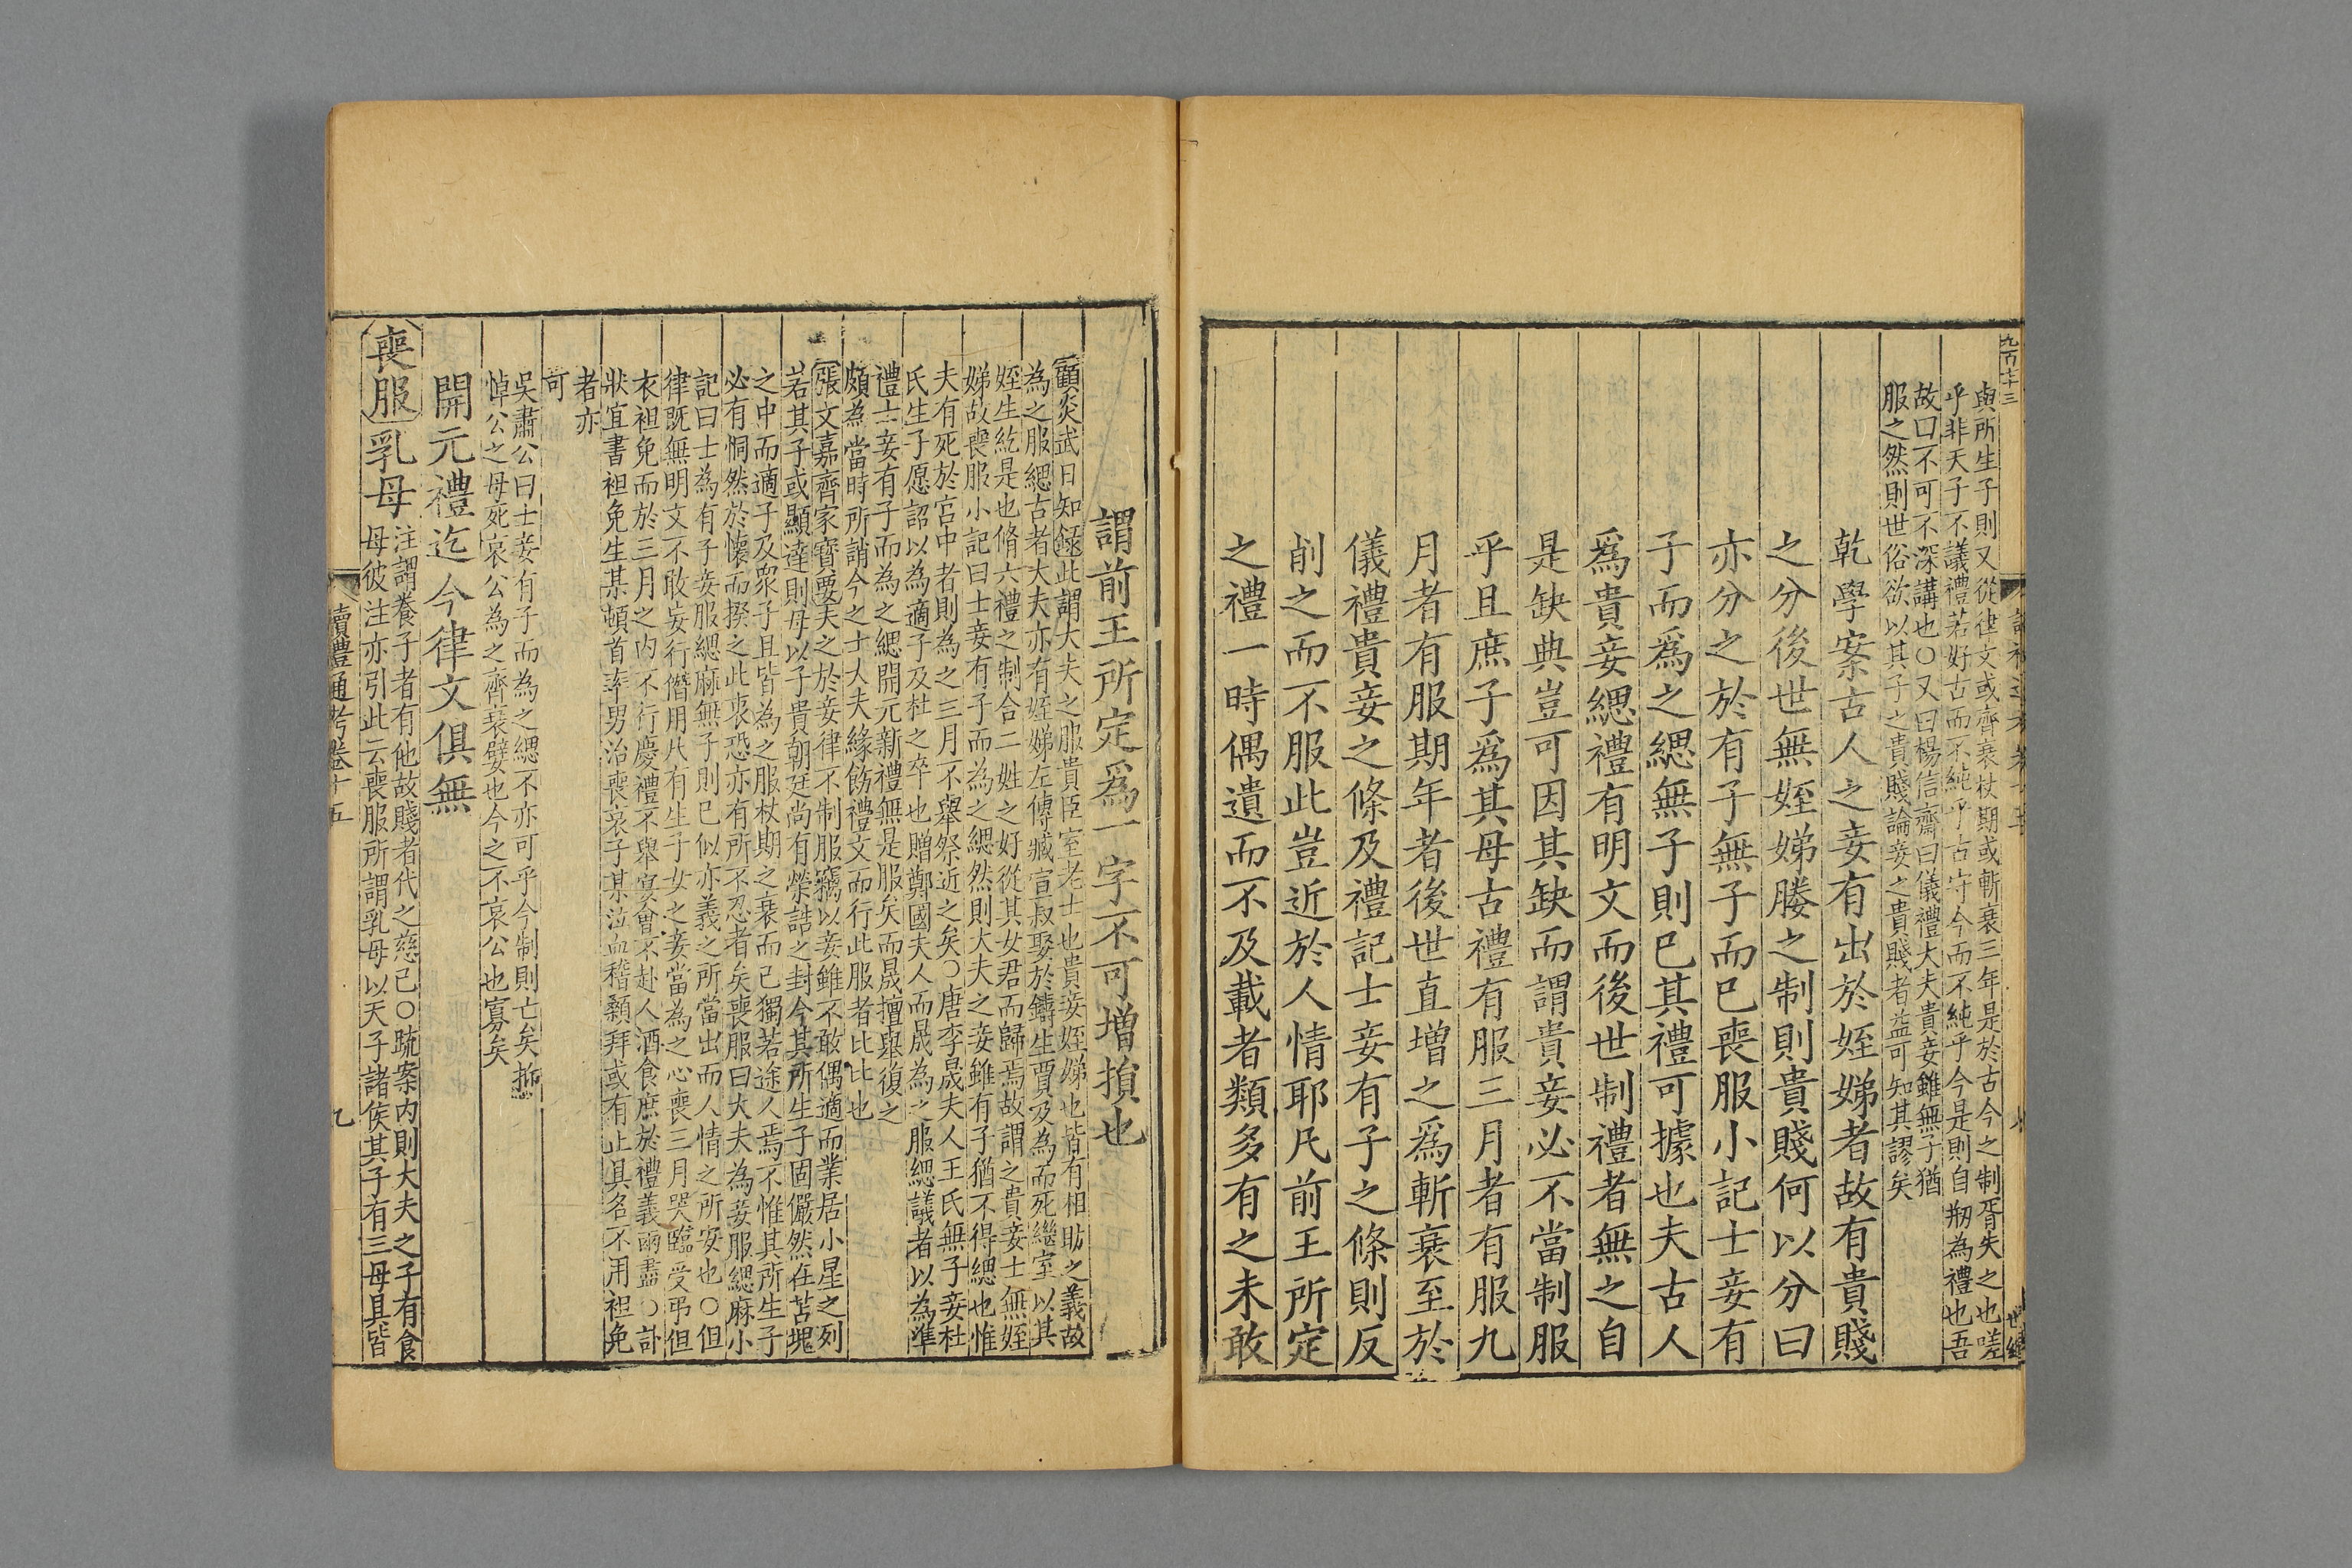 與所生子則又從律文或齊衰杖期或斬衰三年是於古今之制胥失之也嗟
乎非天子不議禮若好古而不純乎古守今而不純乎今是則自刱為禮也吾
故曰不可不深講也○又曰楊信齋曰儀禮大夫貴妾雖無子猶
服之然則世俗欲以其子之貴賤論妾之貴賤者益可知其謬矣
乾學案古人之妾有出於姪娣者故有貴賤
之分後世無姪娣媵之制則貴賤何以分曰
亦分之於有子無子而已喪服小記士妾有
子而爲之緦無子則已其禮可據也夫古人
爲貴妾緦禮有明文而後世制禮者無之自
是缺典豈可因其缺而謂貴妾必不當制服
乎且庶子爲其母古禮有服三月者有服九
月者有服期年者後世直增之爲斬衰至於
儀禮貴妾之條及禮記士妾有子之條則反
削之而不服此豈近於人情耶凡前王所定
之禮一時偶遺而不及載者類多有之未敢
謂前王所定爲一字不可增損也
顧炎武日知錄此謂大夫之服貴臣室老士也貴妾姪娣也皆有相助之義故
為之服緦古者大夫亦有姪娣左傳臧宣叔娶於鑄生賈及為而死繼室以其
姪生紇是也脩六禮之制合二姓之好從其女君而歸焉故謂之貴妾士無姪
娣故喪服小記曰士妾有子而為之緦然則大夫之妾雖有子猶不得緦也惟
夫有死於宮中者則為之三月不舉祭近之矣○唐李晟夫人王氏無子妾杜
氏生子愿詔以為適子及杜之卒也贈鄭國夫人而晟為之服緦議者以為準
禮士妾有子而為之緦開元新禮無是服矣而晟擅舉復之
頗為當時所誚今之士大夫緣飾禮文而行此服者比比也
張文嘉齊家寶要夫之於妾律不制服竊以妾雖不敢偶適而業居小星之列
若其子或顯達則母以子貴朝廷尚有榮誥之封今其所生子固儼然在苫塊
之中而適子及眾子且皆為之服杖期之衰而已獨若途人焉不惟其所生子
必有恫然於懷而揆之此衷恐亦有所不忍者矣喪服曰大夫為妾服緦麻小
記曰士為有子妾服緦麻無子則已似亦義之所當出而人情之所安也○但
律既無明文不敢妄行僭用凡有生子女之妾當為之心喪三月哭臨受弔但
衣袒免而於三月之內不行慶禮不舉宴會不赴人酒食庶於禮義兩盡○訃
狀宜書袒免生某頓首率男治喪哀子某泣血稽顙拜或有止具名不用袒免
者亦
可
吳肅公曰士妾有子而為之緦不亦可乎今制則亡矣抑
悼公之母死哀公為之齊衰嬖也今之不哀公也寡矣
開元禮迄今律文俱無
喪服乳母
注謂養子者有他故賤者代之慈已○疏案內則大夫之子有食
母彼注亦引此云喪服所謂乳母以天子諸侯其子有三母具皆
讀禮通考卷十五
九